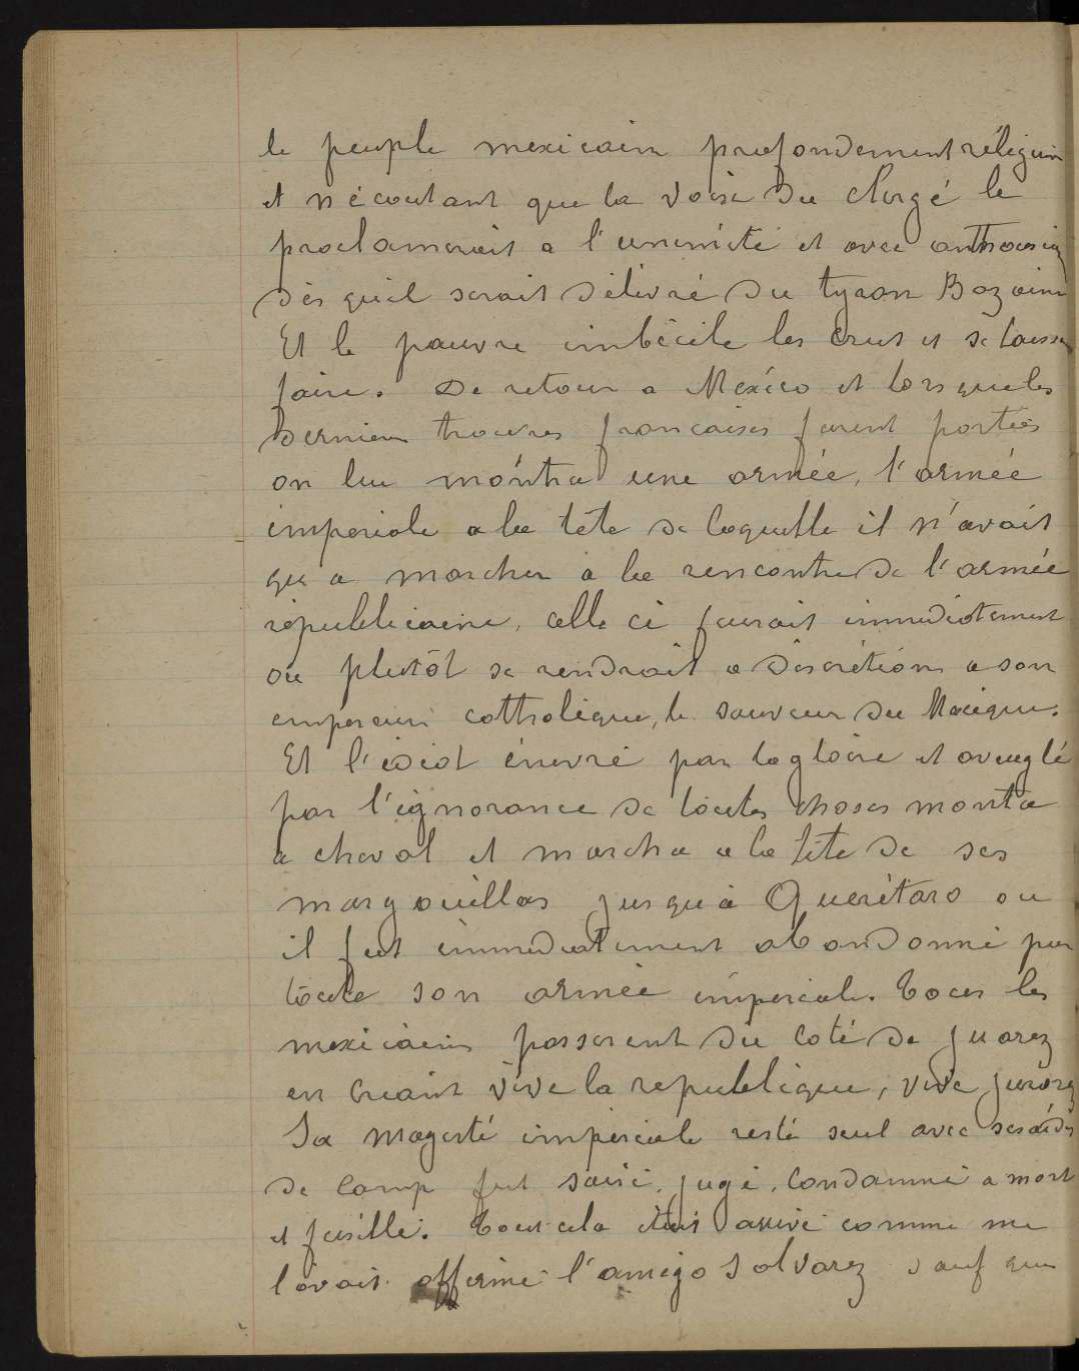 le peuple mexicain profondement réligieu
et n'écoutant que la voix du clergé le
proclamerait a l'unimité et avec anthousia
dès qu'il serait délivré du tyran Bazaine
Et le pauvre imbécile les crut et se laissa
faire. De retour a Mexico et lorsque les
dernieres troupes francaises furent parties
on lui montra une armée, l'armée
imperiale a la tête de laquelle il n'avait
qu'a marcher a la rencontre de l'armée
républicaine, celle ci fuirait immediatement
ou plutôt se rendrait a discrétion a son
empereur catholique, le sauveur du Mexique.
Et l'idiot énivré par la gloire et aveuglé
par l'ignorance de toutes choses monta
a cheval et marcha a la tête de ses
margouillas jusqu'a Querétaro ou
il fut immediatement abandonné par
toute son armée impériale. Tous les
mexicains passerent du coté de Juarez
en criant vive la republique, vive Juarez
Sa Magesté impériale resté seul avec ses aides
de camp fut saisi, jugé, condamné a mort
et fusillé. Tout cela était arrivé comme me
l'avait affirmé l'amigo Salvarez sauf que